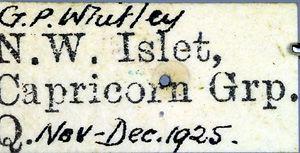 G.P. Whitley
N.W. Islet,
Capricorn Grp.
Q. Nov-Dec. 1925.